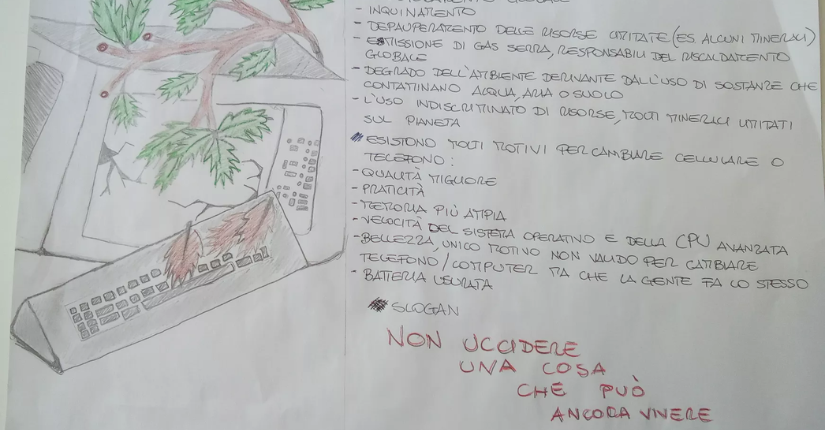 - INQUINAMENTO
- DEPAUPERAMENTO DELLE RISORSE LIMITATE (ES. ALCUNI MINERALI)
- EMISSIONE DI GAS SERRA, RESPONSABILI DEL RISCALDAMENTO
GLOBALE
- DEGRADO DELL'AMBIENTE DERIVANTE DALL'USO DI SOSTANZE CHE
CONTAMINANO ACQUA, ARIA O SUOLO
- L'USO INDISCRIMINATO DI RISORSE, MOLTI MINERALI LIMITATI
SUL PIANETA
ESISTONO MOLTI MOTIVI PER CAMBIARE CELLULARE O
TELEFONO:
- QUALITÀ MIGLIORE
- PRATICITÀ
- MEMORIA PIÙ AMPIA
- VELOCITÀ DEL SISTEMA OPERATIVO E DELLA CPU AVANZATA
- BELLEZZA, UNICO MOTIVO NON VALIDO PER CAMBIARE
TELEFONO/COMPUTER MA CHE LA GENTE FA LO STESSO
- BATTERIA USURATA
SLOGAN
NON UCCIDERE
UNA COSA
CHE PUÒ
ANCORA VIVERE